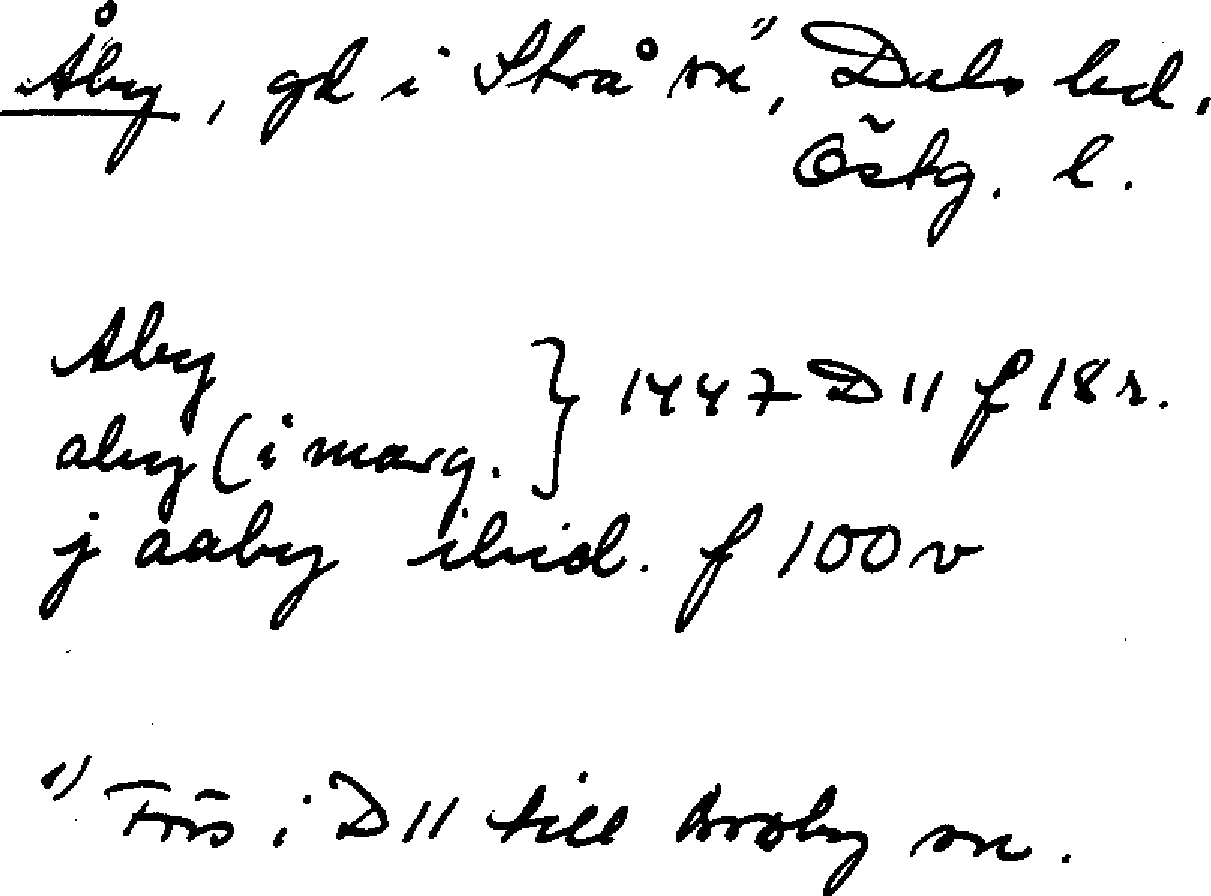 Åby, gd i Strå sn¹⁾, Dals hd.
Östg. l.
Aby
aby (i marg. } 1447 D 11 f 18 r.
j aaby ibid. f 100 v
¹⁾ Förs i D 11 till Broby sn.